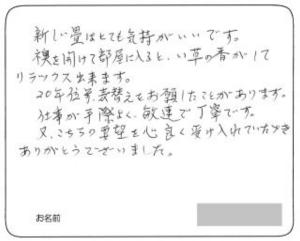 新しい畳はとても気持がいいです。
襖を開けて部屋に入ると、い草の香がして
リラックス出来ます。
20年位前、表替えをお願したことがあります。
仕事が手際よく、敏速で丁寧です。
又、こちらの要望を心良く受け入れていただき
ありがとうございました。
お名前